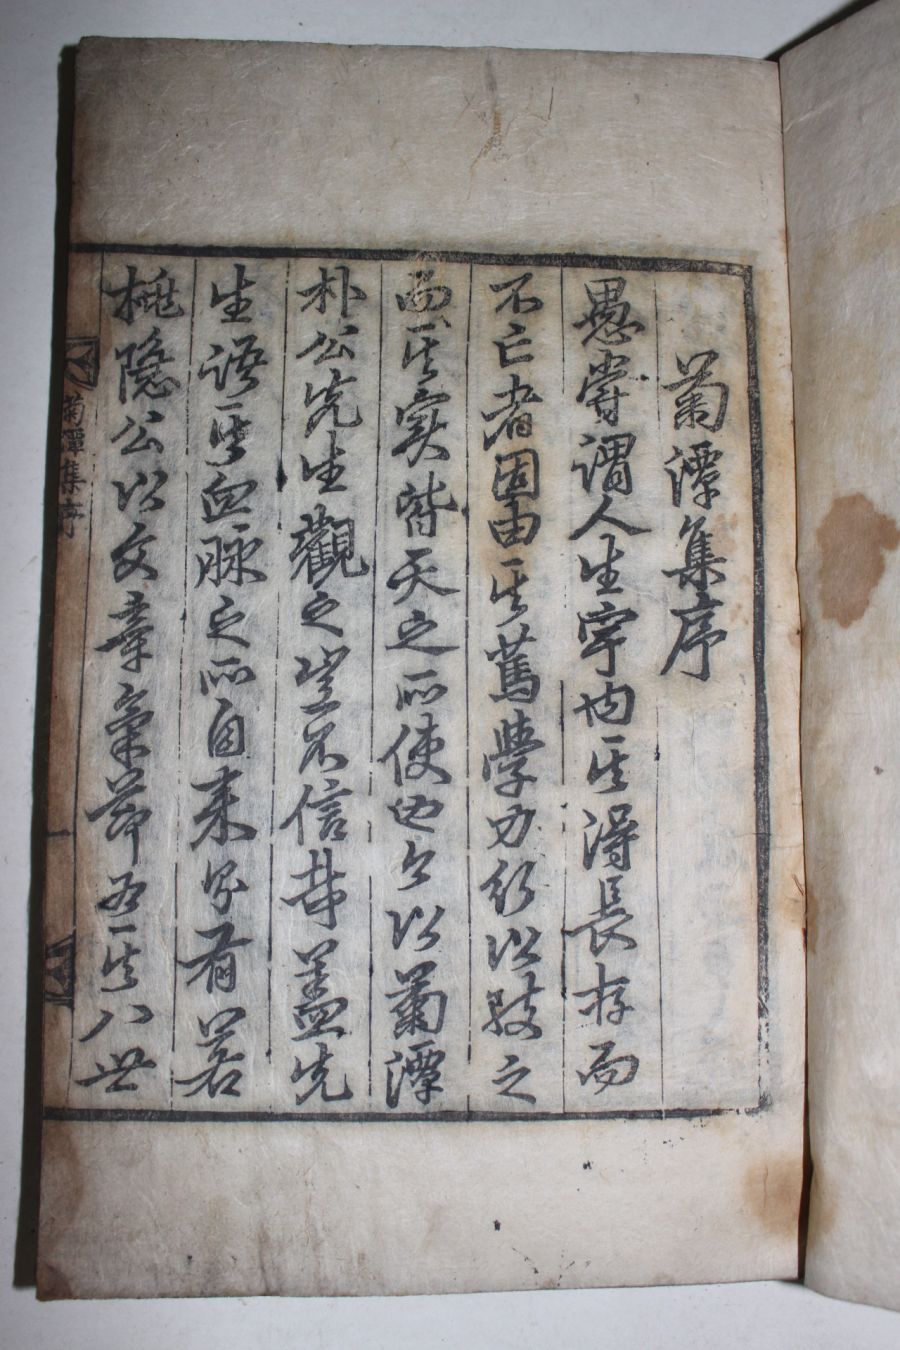 菊潭集序
愚嘗謂人生宇內其得長存而
不亡者固由其篤學力行以致之
而其實皆天之所使也今以菊潭
朴公先生觀之豈不信哉蓋先
生語其血脉之所自來則有若
樵隱公以文章氣節爲其八世
菊潭集序